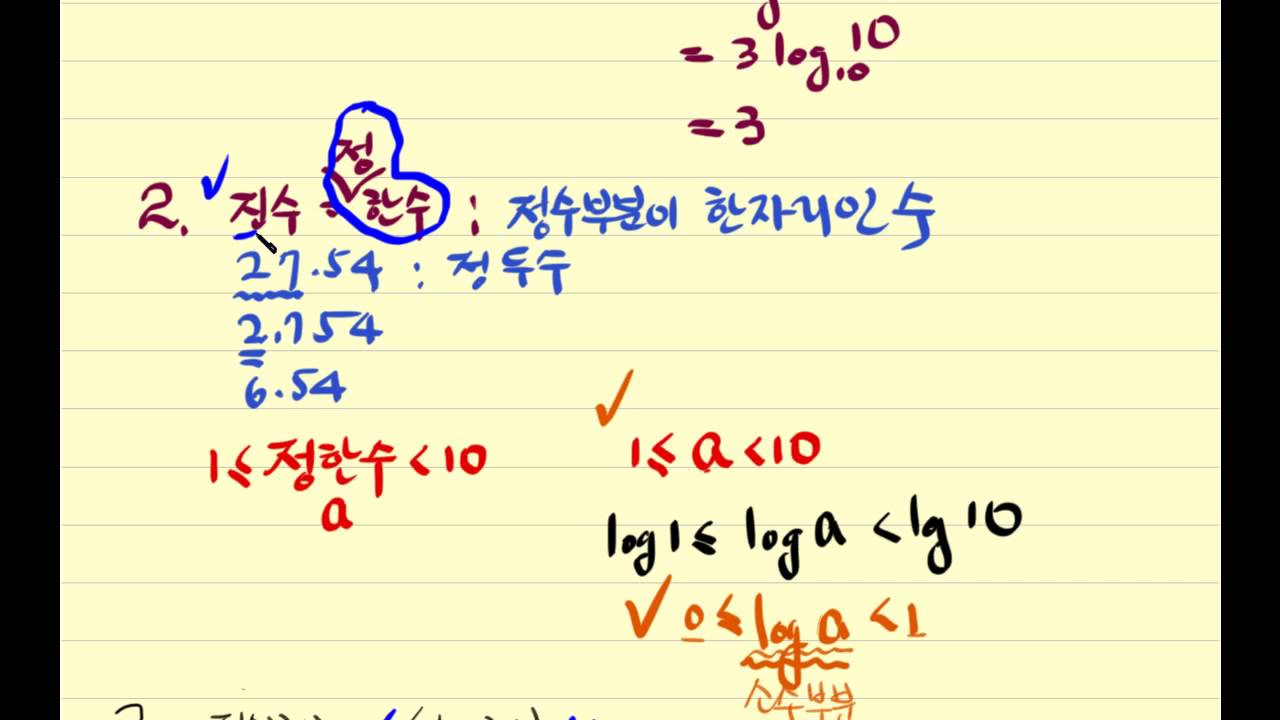 = 3 log₁₀ 10
= 3
정
2. 진수 = 한수 : 정수부분이 한자리인 수
27.54 : 정두수
2.754
6.54
1 ≤ 정한수 < 10
a
1 ≤ a < 10
log 1 ≤ log a < lg 10
0 ≤ log a < 1